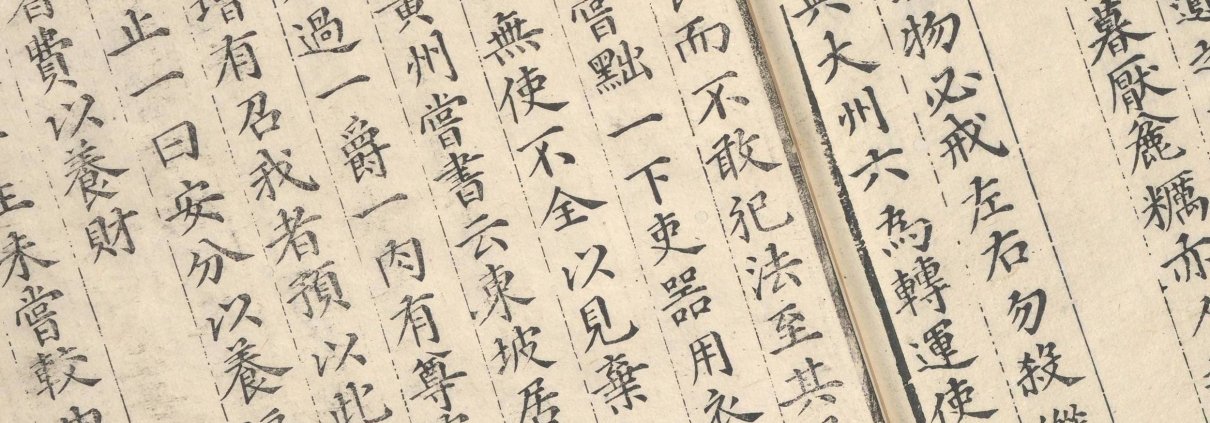 之
暮厭麁糲亦
物必戒左右勿殺
大州六為轉運使
而不敢犯法至其
嘗黜一下吏器用衣
無使不全以見棄
黄州嘗書云東坡居
過一爵一肉有尊
增有召我者預以此
止一曰安分以養
費以養財
未嘗較